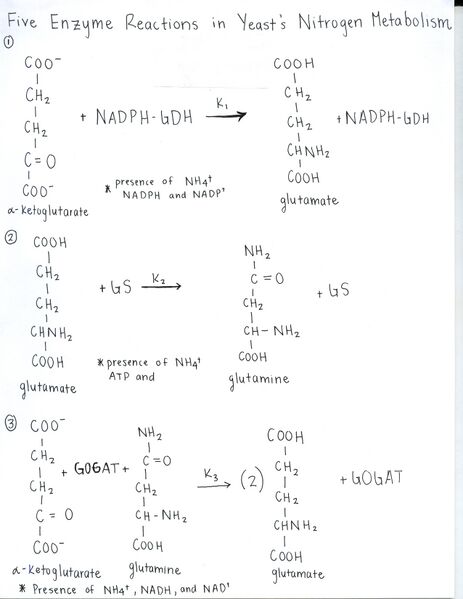 Five Enzyme Reactions in Yeast's Nitrogen Metabolism
①
COO⁻
CH₂
CH₂
C = O
COO⁻
α-Ketoglutarate
+ NADPH-GDH
K₁
COOH
CH₂
CH₂
CHNH₂
COOH
glutamate
+ NADPH-GDH
* presence of NH₄⁺
NADPH and NADP⁺
②
COOH
CH₂
CH₂
CHNH₂
COOH
glutamate
+ GS
K₂
NH₂
C = O
CH₂
CH - NH₂
COOH
glutamine
+ GS
* presence of NH₄⁺
ATP and
③
COO⁻
CH₂
CH₂
C = O
COO⁻
α-Ketoglutarate
+ GOGAT +
NH₂
C = O
CH₂
CH - NH₂
COOH
glutamine
K₃
(2)
COOH
CH₂
CH₂
CHNH₂
COOH
glutamate
+ GOGAT
* Presence of NH₄⁺, NADH, and NAD⁺